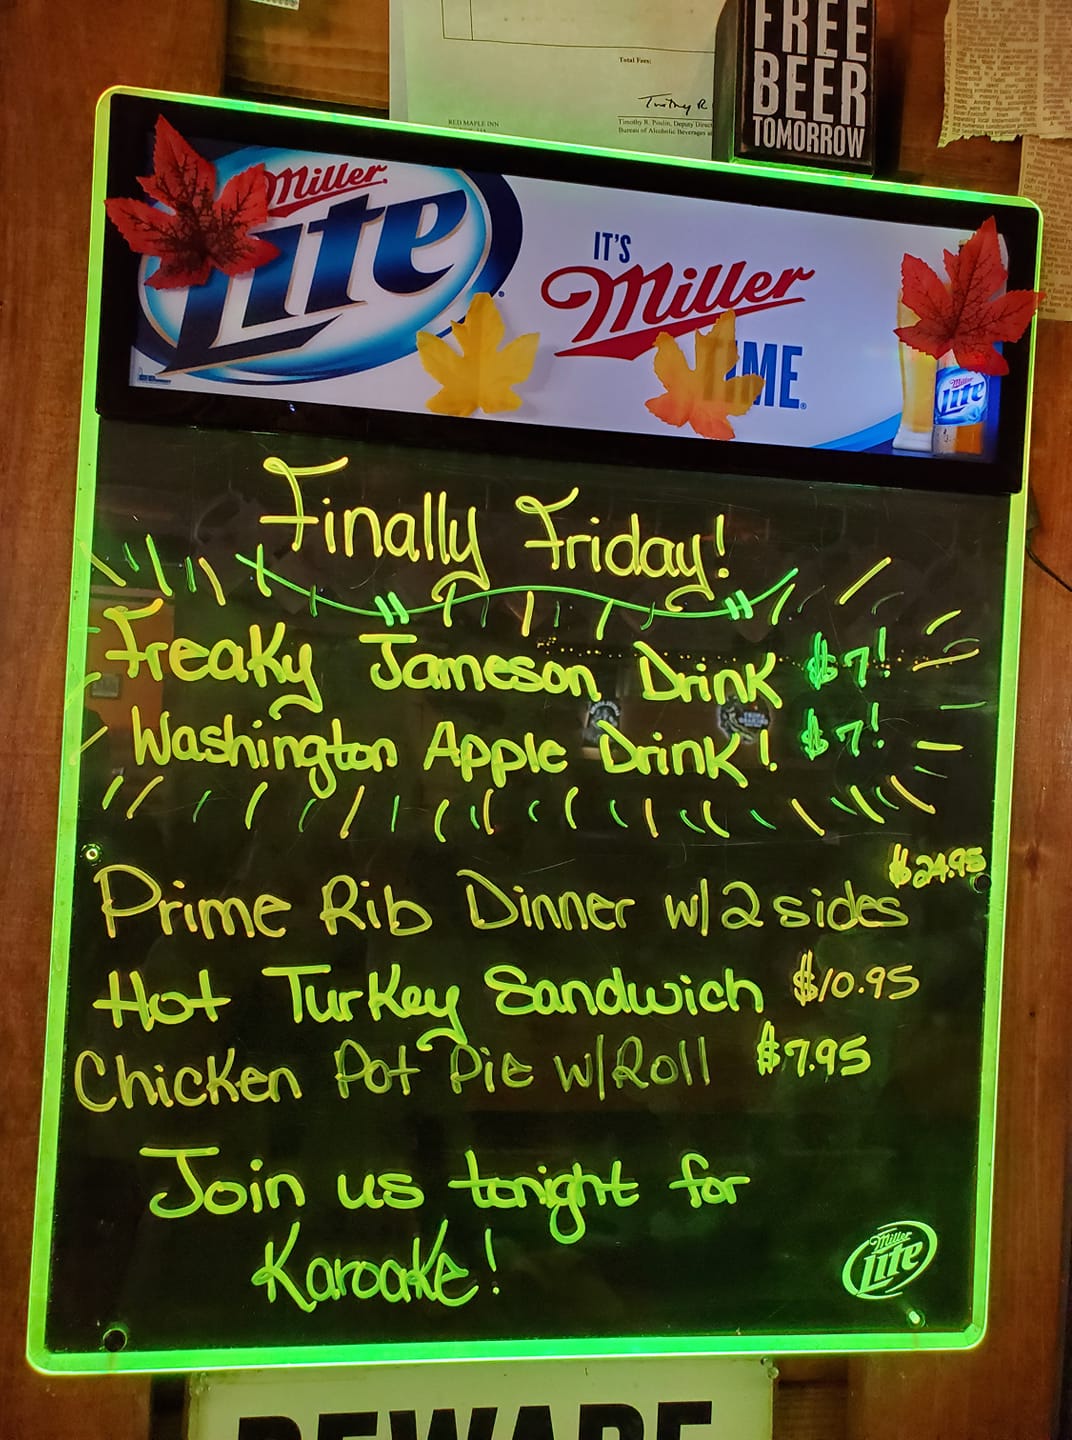 Total Fees:
RED MAPLE INN
Timothy R. Poulin, Deputy
Bureau of Alcoholic Beverages
FREE
BEER
TOMORROW
Miller
Lite
IT'S
Miller
TIME.
Miller
Lite
Finally Friday!
Freaky Jameson Drink $7!
Washington Apple Drink! $7!
Prime Rib Dinner w/2 sides $24.95
Hot Turkey Sandwich $10.95
Chicken Pot Pie w/Roll $7.95
Join us tonight for
Karoake!
Miller
Lite
BEWARE